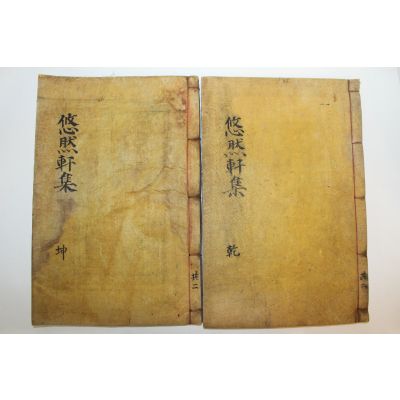 悠然軒集
乾
共二
悠然軒集
坤
共二